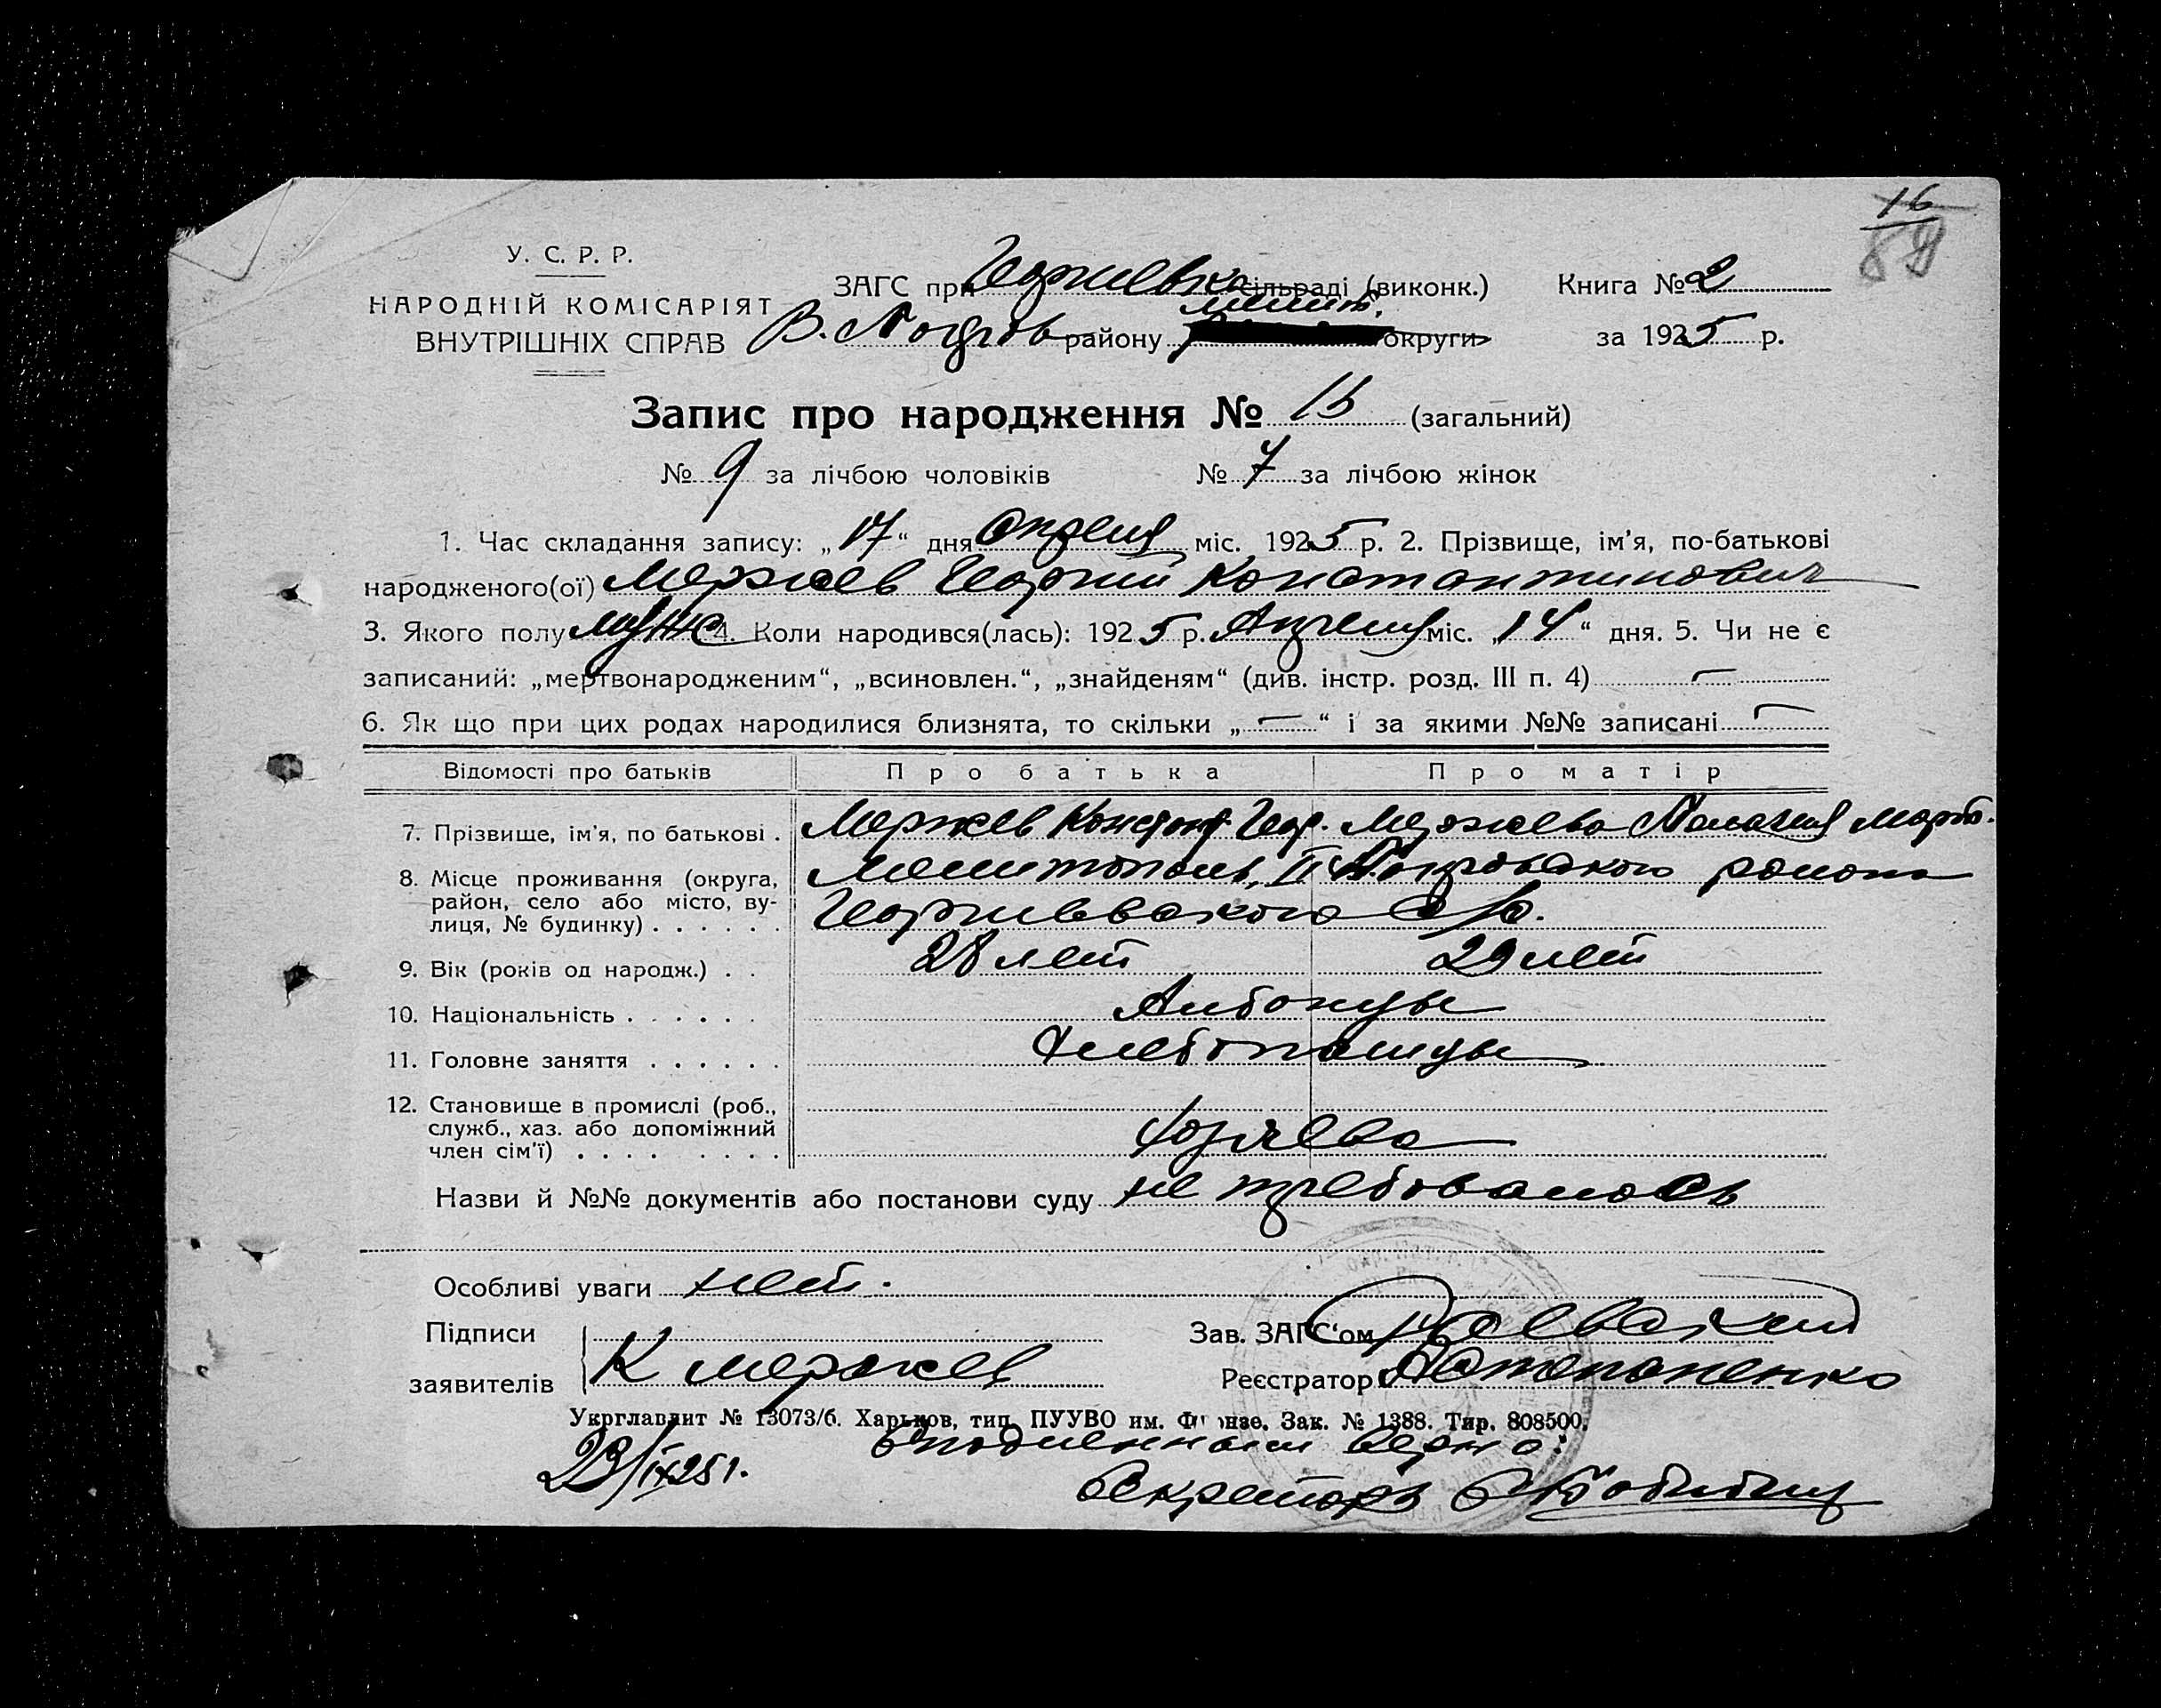 16
89
У. С. Р. Р.
НАРОДНІЙ КОМІСАРІЯТ
ВНУТРІШНІХ СПРАВ
ЗАГС при Георгиевка сільраді (виконк.)
мелит.
В. Покров району округи
Книга № 2
за 1925 р.
Запис про народження № 15 (загальний)
№ 9 за лічбою чоловіків № 7 за лічбою жінок
1. Час складання запису: „17“ дня Апреля міс. 1925 р. 2. Прізвище, ім’я, по-батькові
народженого(ої) Мержев Георгий Константинович
3. Якого полу муж 4. Коли народився(лась): 1925 р. Апреля міс. „14“ дня. 5. Чи не є
записаний: „мертвонародженим“, „всиновлен.“, „знайденям“ (див. інстр. розд. III п. 4) —
6. Як що при цих родах народилися близнята, то скільки „—“ і за якими №№ записані —
Відомості про батьків Про батька Про матір
7. Прізвище, ім’я, по батькові . Мержев Констант. Геор. Мержева Пелагия Март.
8. Місце проживання (округа, район, село або місто, вулиця, № будинку) . . . . . . Мелитополь, II Покровского района
Георгиевского с/с.
9. Вік (років од народж.) . . 28 лет 29 лет
10. Національність . . . . . . Албанцы
11. Головне заняття . . . . . . Хлебопашцы
12. Становище в промислі (роб., служб., хаз. або допоміжний член сім’ї) . . . . . . . . . Хозяева
Назви й №№ документів або постанови суду не требовалось
Особливі уваги нет.
Підписи
заявителів К Мержев
Зав. ЗАГС‘ом
Реєстратор Остапоненко
Укрглавлит № 13073/6. Харьков, тип. ПУУВО им. Фрунзе. Зак. № 1388. Тир. 808500.
с подленным верно:
23/IX 25 г.
Секретарь